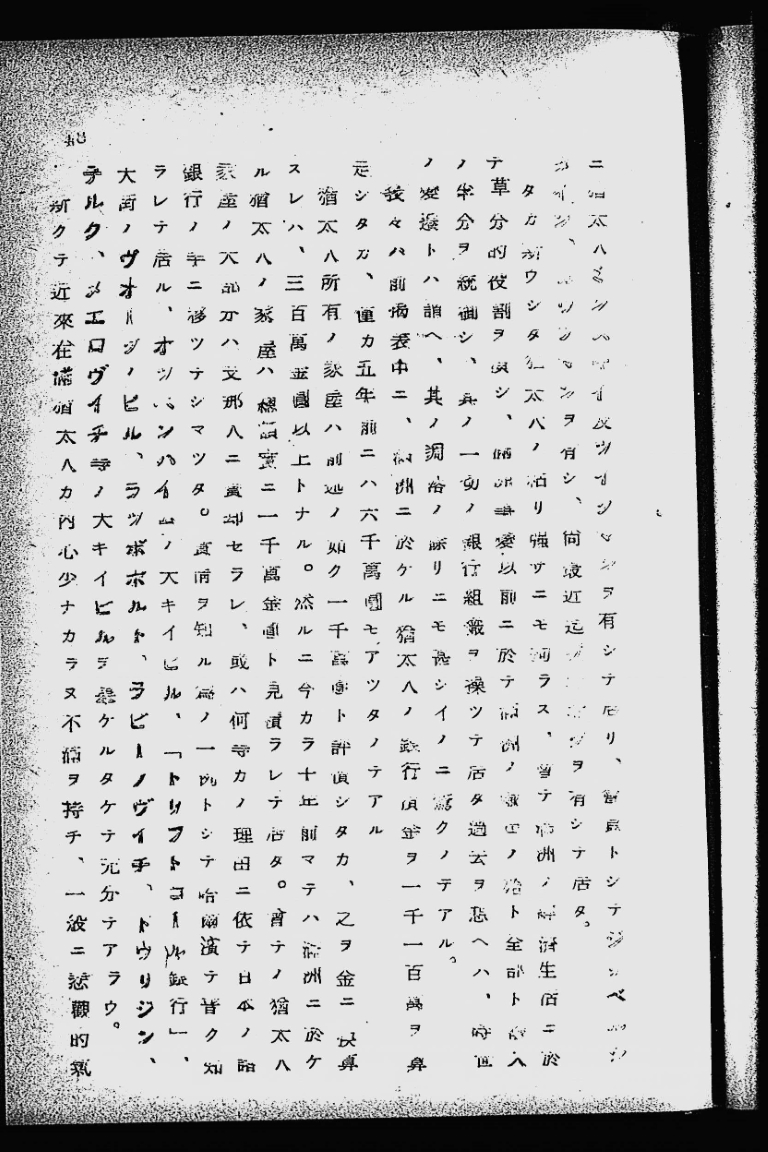 ニ猶太人 ヲ有シテ居リ、 トシテ
ヲ有シ、尚最近迄 ヲ有シテ居タ。
タカ斯ウシタ猶太人ノ粘リ強サニモ拘ラス、曾テ満洲ノ経済生活ニ於
テ草分的役割ヲ演シ、満洲事變以前ニ於テ満洲ノ ノ殆ト全部ト輸入
ノ半分ヲ統御シ、其ノ一切ノ銀行組織ヲ操ツテ居タ過去ヲ思ヘハ、時世
ノ變遷トハ謂ヘ、其ノ凋落ノ餘リニモ甚シイノニ驚クノテアル。
我々ハ前掲表中ニ、満洲ニ於ケル猶太人ノ銀行資金ヲ一千一百萬ヲ算
定シタカ、僅カ五年前ニハ六千萬圓モアツタノテアル
猶太人所有ノ家屋ハ前述ノ如ク一千萬圓ト評價シタカ、之ヲ金ニ換算
スレハ、三百萬金圓以上トナル。然ルニ今カラ十年前マテハ満洲ニ於ケ
ル猶太人ノ家屋ハ總額實ニ一千萬金圓ト見積ラレテ居タ。曾テノ猶太人
家産ノ大部分ハ支那人ニ賣却セラレ、或ハ何等カノ理由ニ依テ日本ノ諸
銀行ノ手ニ移ツテシマツタ。實情ヲ知ル為ノ一例トシテ哈爾濱テ皆ク知
ラレテ居ル、オツペンハイムノ大キイビル、「トリフトコール銀行」、
大商ノヴオージノビル、ラツポポルト、ラビーノヴイチ、ドウリジン、
テルク、メエロヴイチ等ノ大キイビルヲ擧ケルタケテ充分テアラウ。
斯クテ近來在滿猶太人カ内心少ナカラヌ不滿ヲ持チ、一般ニ悲觀的氣